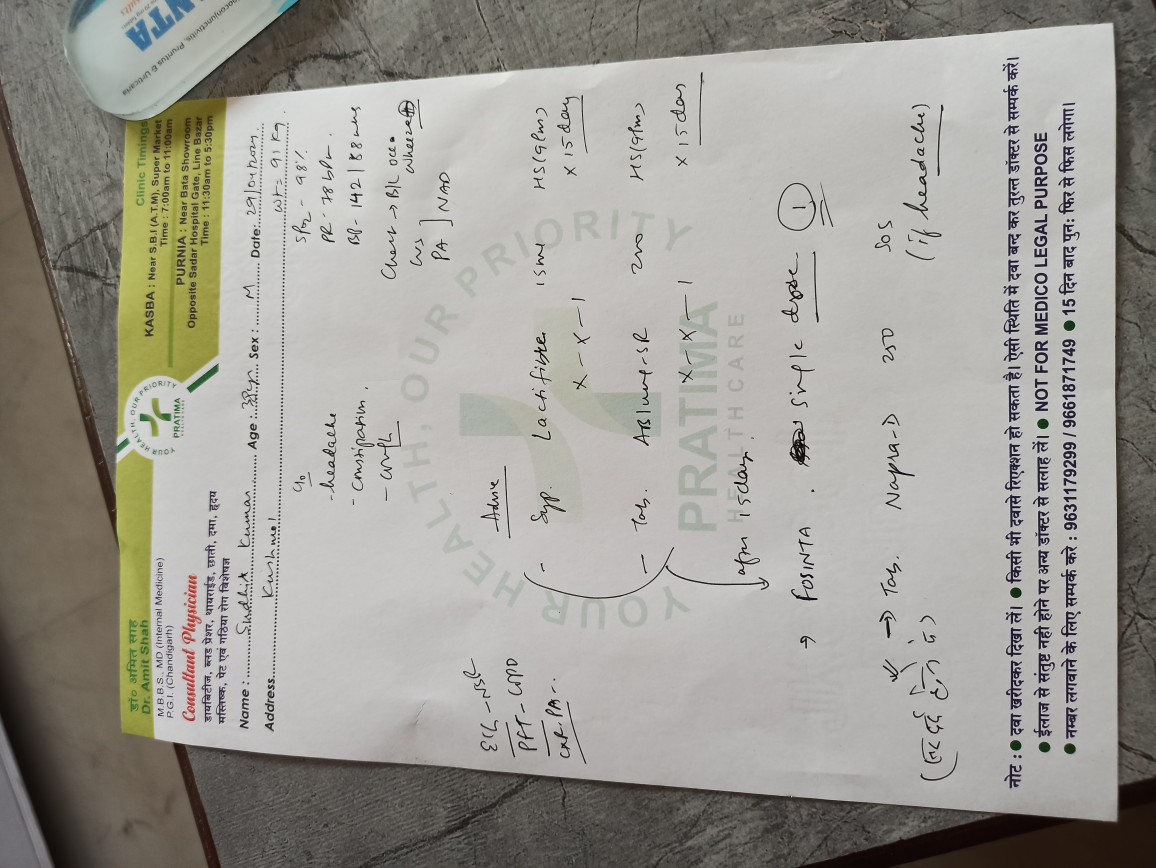 डॉ० अमित साह
Dr. Amit Shah
M.B.B.S., MD (Internal Medicine)
P.G.I. (Chandigarh)
Consultant Physician
डायबिटीज, ब्लड प्रेशर, थायराईड, छाती, दमा, हृदय
मस्तिष्क, पेट एवं गठिया रोग विशेषज्ञ
YOUR HEALTH, OUR PRIORITY
PRATIMA
Clinic Timings
KASBA : Near S.B.I (A.T.M), Super Market
Time : 7:00am to 11:00am
PURNIA : Near Bata Showroom
Opposite Sadar Hospital Gate, Line Bazar
Time : 11:30am to 5:30pm
Name : Kumar Age : Sex : M Date: 29/04/
Address wt = 91 kg
c/o
- headache
- constipation.
- cough
SPO2 - 98%
PR - 78 bpm.
BP - 142/88
Chest → B/L occ.
wheeze (+)
PA ] NAD
ECG - NSR
PFT - COPD
CXR-PA -
Advice
- Syp. Lactifiber 15ml HS (9pm)
X - X - 1 X 15 day
- Tab. AB Flow-SR 200 HS (9pm)
X - X - 1 X 15 day
after 15 day
→ FOSINTA. single dose 1
→ Tab. Napra-D 250 SOS
(if headache)
YOUR HEALTH, OUR PRIORITY
PRATIMA
HEALTHCARE
नोट : ● दवा खरीदकर दिखा लें। ● किसी भी दवासे रिएक्शन हो सकता है। ऐसी स्थिति में दवा बन्द कर तुरन्त डॉक्टर से सम्पर्क करें।
● ईलाज से संतुष्ट नही होने पर अन्य डॉक्टर से सलाह लें। ● NOT FOR MEDICO LEGAL PURPOSE
● नम्बर लगवाने के लिए सम्पर्क करे : 9631179299 / 9661871749 ● 15 दिन बाद पुन: फिर से फिस लगेगा।
NTA
oconjunctivitis, Pruritus & Urticaria